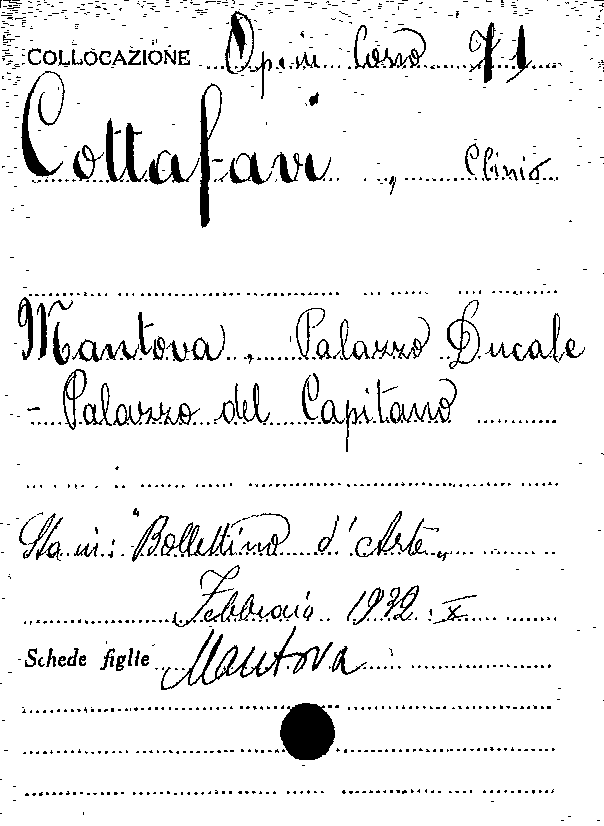 COLLOCAZIONE Op. in Corso 71
Cottafavi, Clinio
Mantova, Palazzo Ducale
- Palazzo del Capitano
Sta in: "Bollettino d'Arte"
Febbraio 1932. X
Schede figlie Mantova